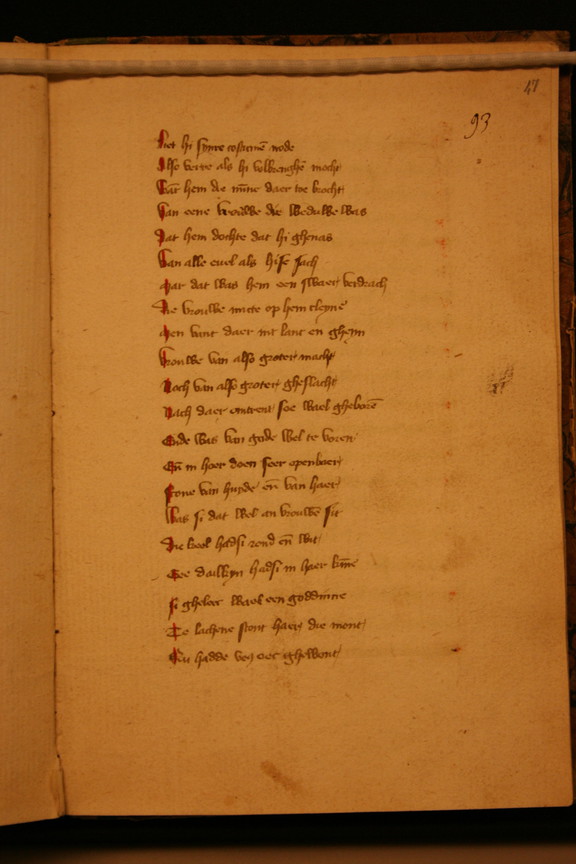 47
93
Liet hi synre costumē node
Also verre als hi volbrenghē mocht
Wāt hem die mīne daer toe brocht
Van eene vrouwe die weduwe was
Dat hem dochte dat hi ghenas
Van alle euel als hise sach
Mar dat was hem een swaer verdrach
Die vrouwe micte op hem cleyne
Men vant daer int lant en gheyn
Vrouwe van also groter macht
Noch van also groter gheslacht
Nach daer omtrent soe wael gheborē
Ende was van gude wel te voren
Eñ in hoer doen seer openbaer
Scone van huyde eñ van haer
Was si dat wel an vrouwē sit
Die keel hadsi rond eñ wit
Een in haer kīne
Si gheleec wael een goddinne
Te lachene stont haer die mont
Nu hadde ghewont